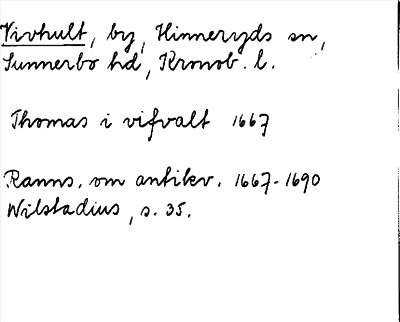 Vivhult, by, Hinneryds sn,
Sunnerbo hd, Kronob. l.
Thomas i vifvalt 1667
Ranns. om antikv. 1667-1690
Wilstadius, s. 35.